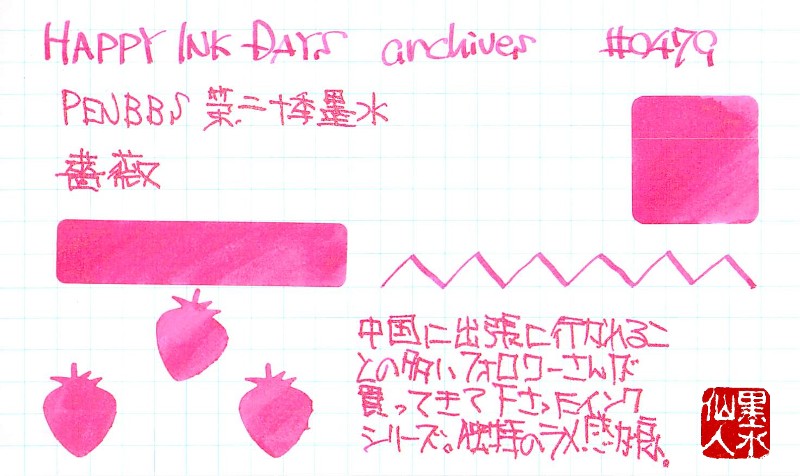 HAPPY INK DAYS archives #0479
PENBBS 第二十季墨水
薔薇
中国に出張に行かれるこ
との多いフォロワーさんが
買ってきて下さったインク
シリーズ。独特のラメ感が良い。
墨水
仙人